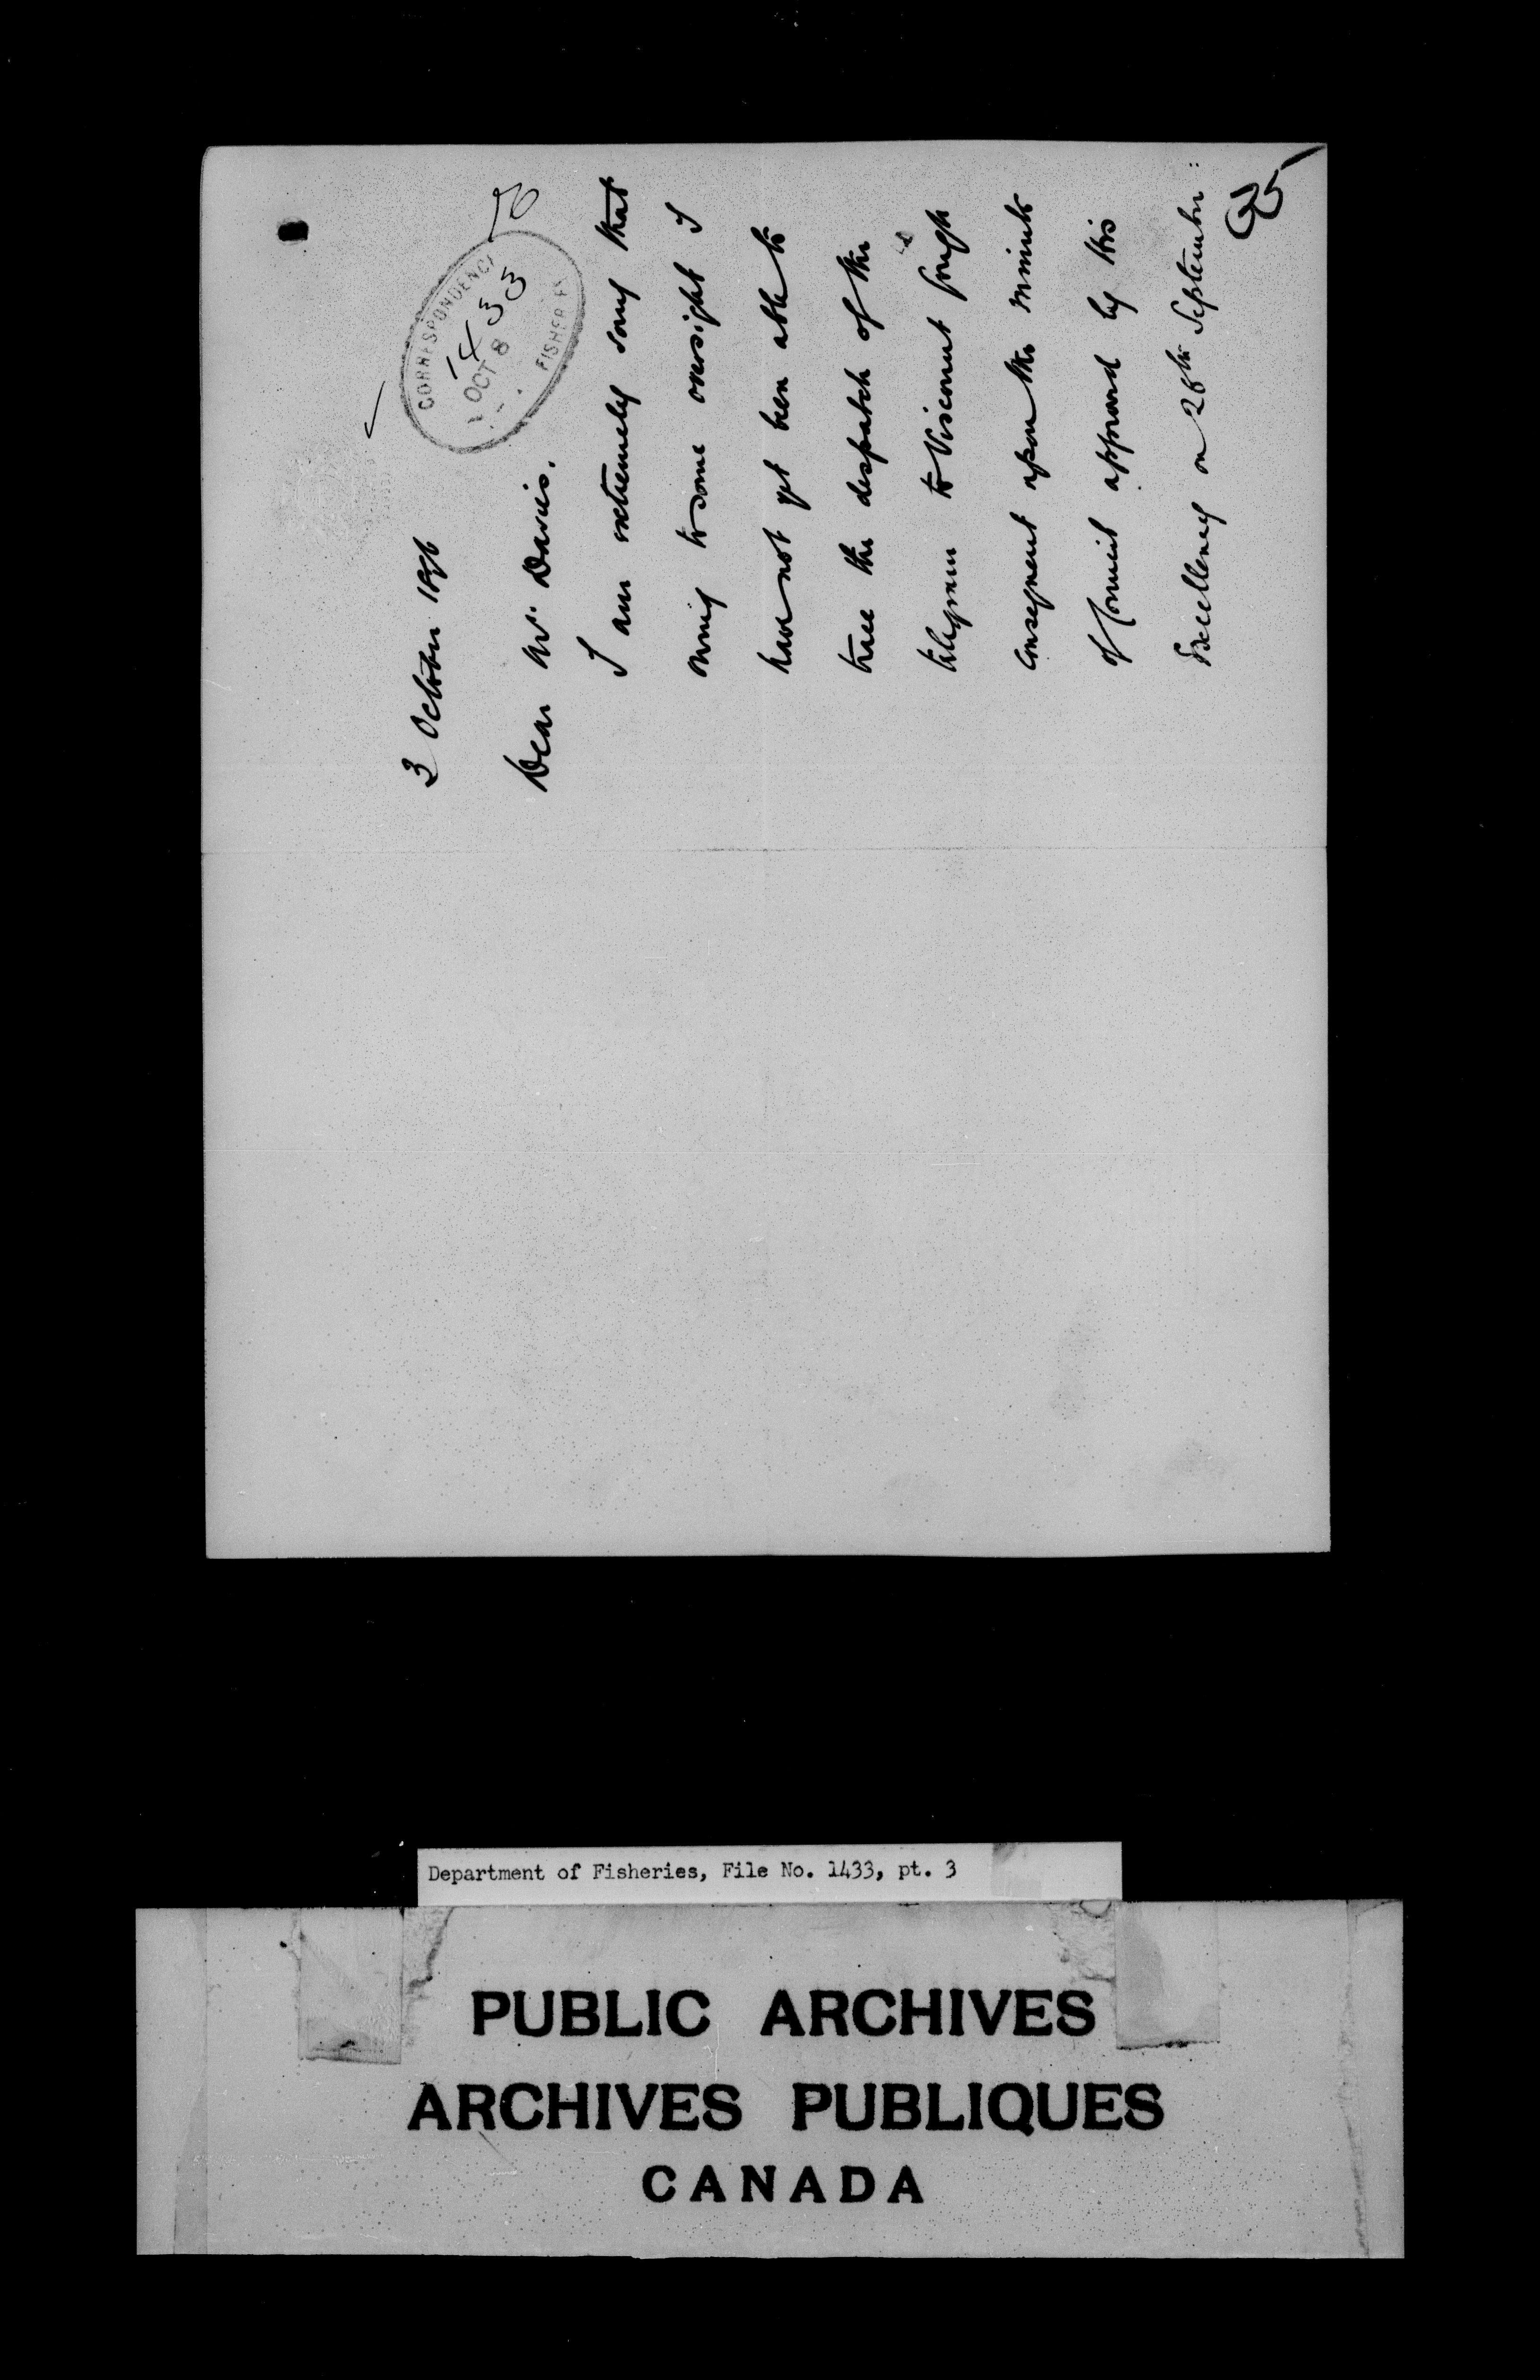 3 October 1896
CORRESPONDENCE
1433
OCT 8
FISHERI
76
Dear Mr. Davies.
I am extremely sorry that
owing to some oversight I
have not yet been able to
trace the despatch of the
telegram to Viscount Gough
consequent upon the minute
of Council approved by His
Excellency on 26th September:
Department of Fisheries, File No. 1433, pt. 3
PUBLIC ARCHIVES
ARCHIVES PUBLIQUES
CANADA